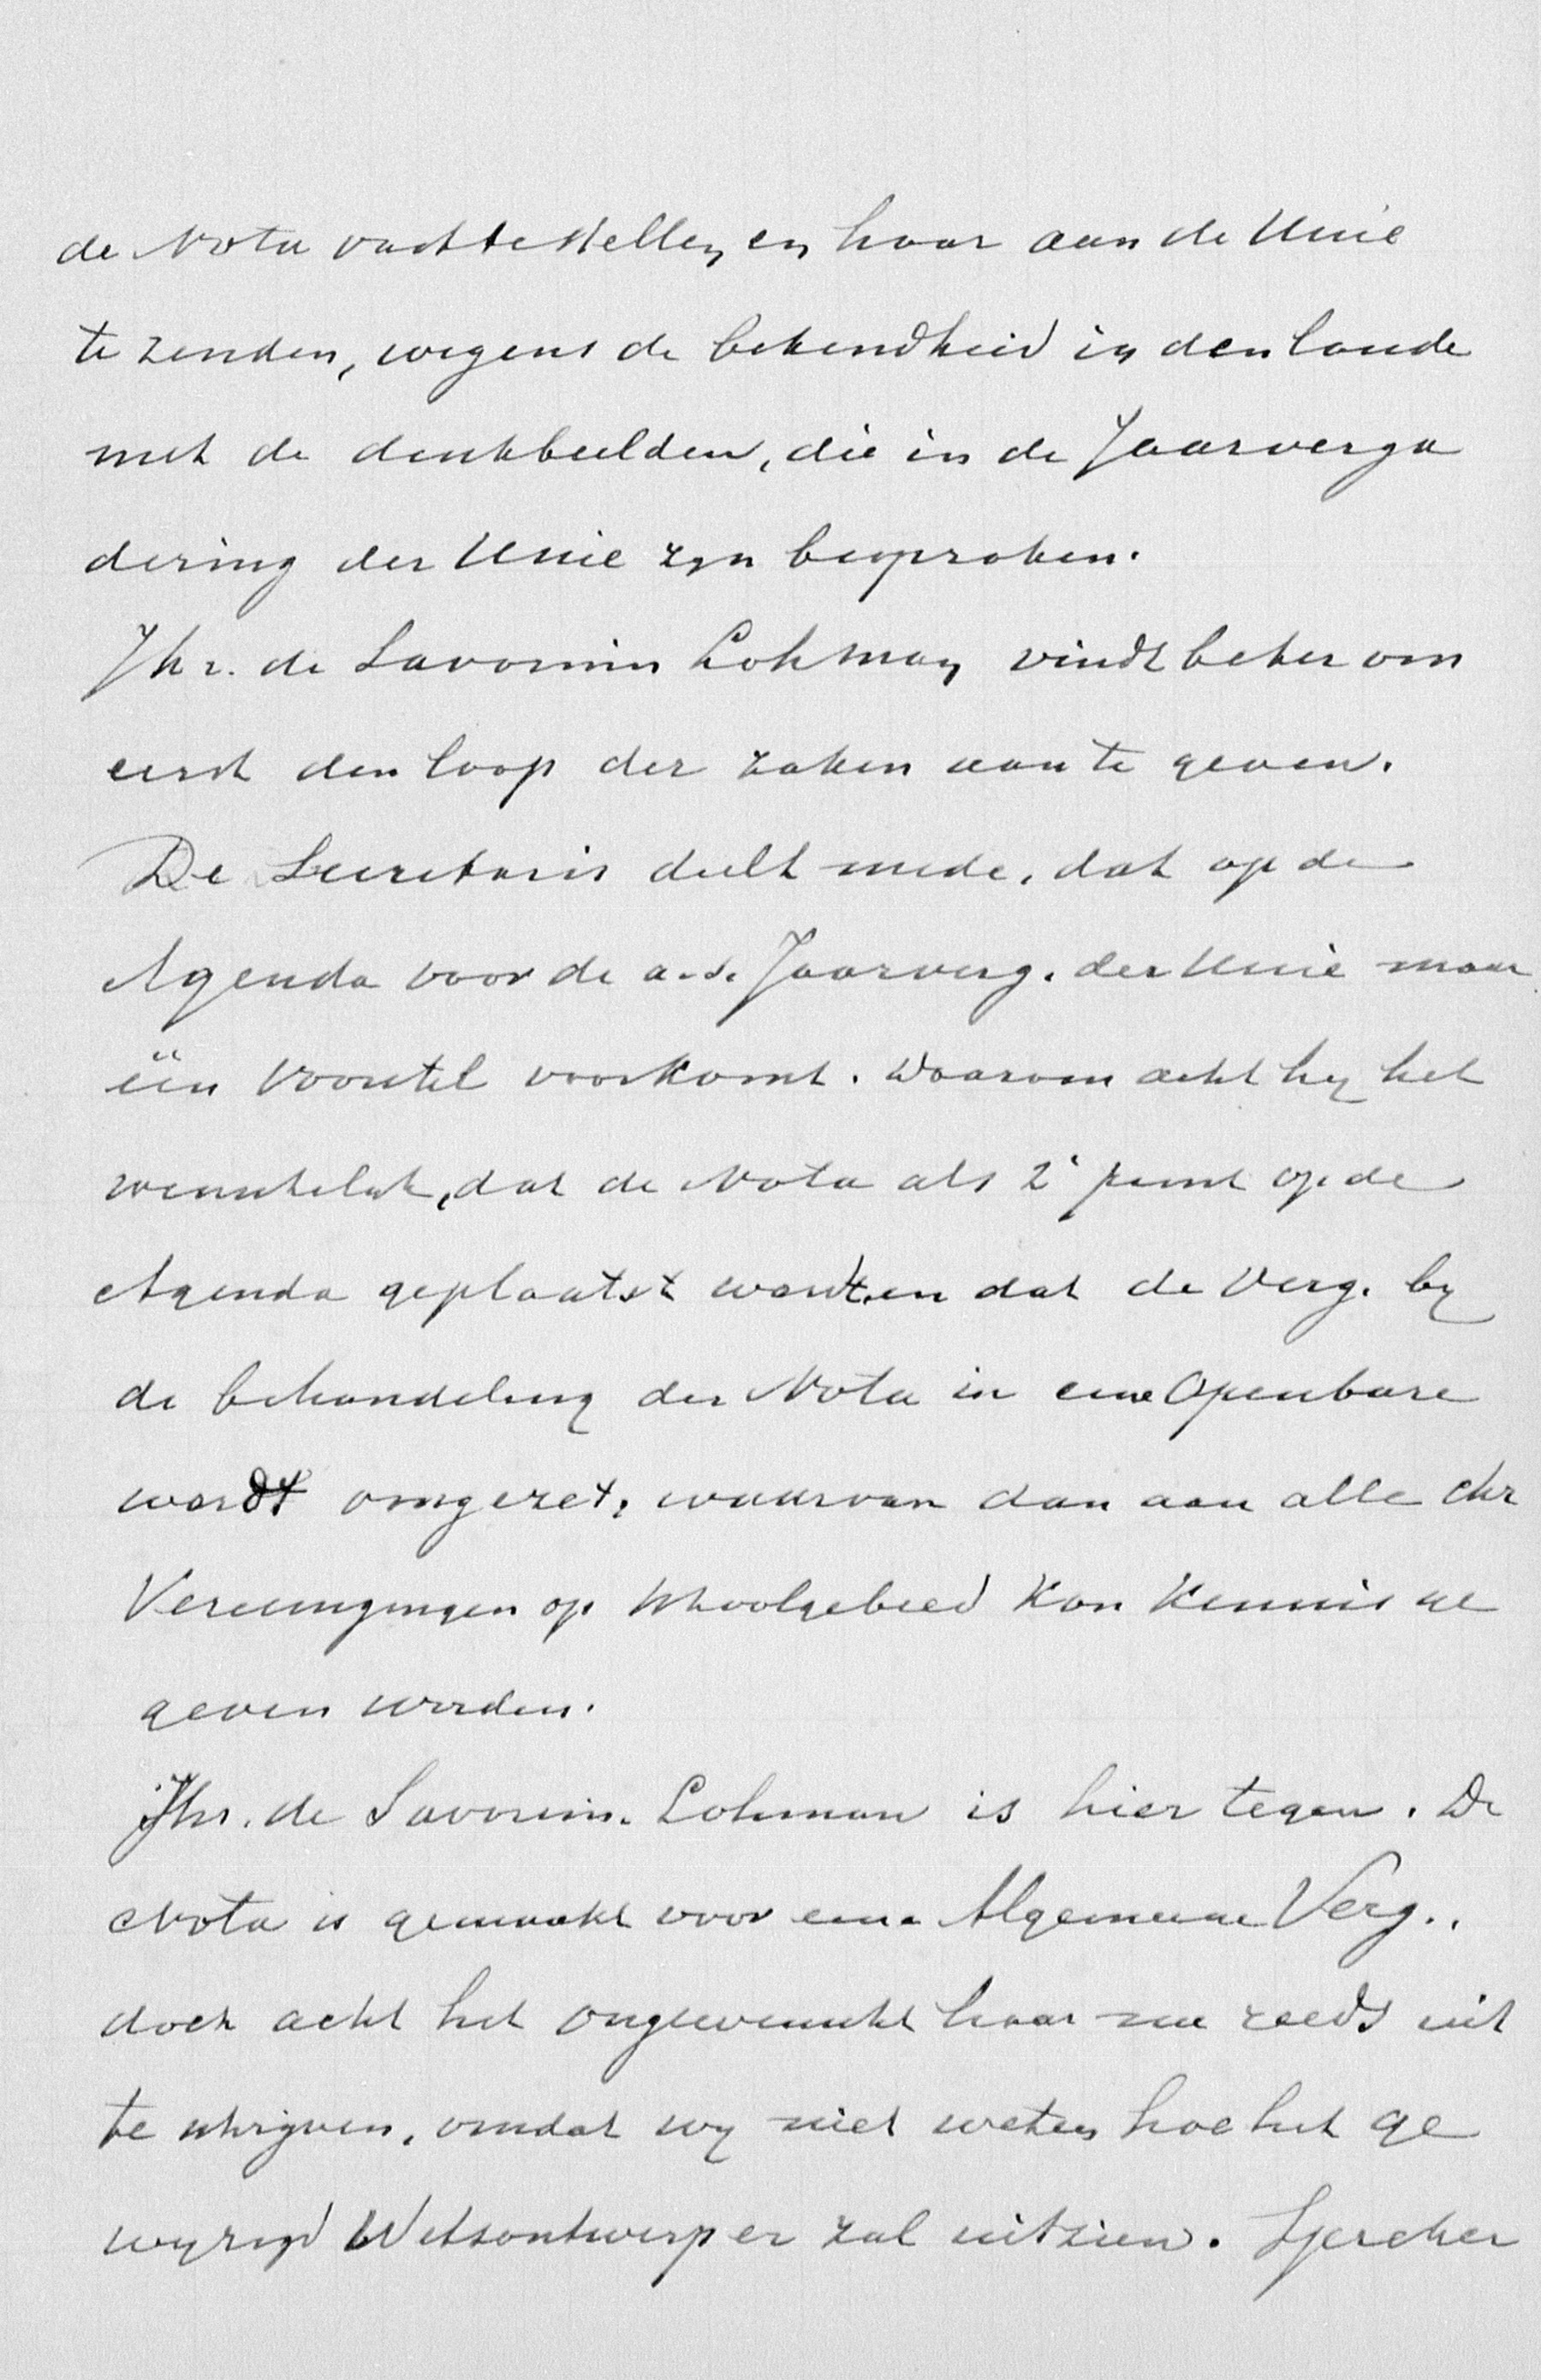 de Nota vast te stellen en haar aan de Unie
te zenden, wegens de bekendheid in den lande
met de denkbeelden, die in de Jaarverga
dering der Unie zyn besproken.
Jhr. de Savornin Lohman vindt beter om
eerst den loop der zaken aan te geven.
De Secretaris deelt mede, dat op de
Agenda voor de a.s. Jaarverg. der Unie maar
één voorstel voorkomt. Daarom acht hy het
wenschelyk, dat de Nota als 2e punt op de
Agenda geplaatst wordt en dat de Verg. by
de behandeling der Nota in eene Openbare
wordt omgezet, waarvan dan aan alle Chr
Vereenigingen op schoolgebied kan kennis ge
geven worden.
Jhr. de Savornin Lohman is hier tegen. De
Nota is gemaakt voor eene Algemeene Verg.,
doch acht het ongewenscht haar nu reeds uit
te schryven, omdat wy niet weten hoe het ge
wyzigd Wetsontwerp er zal uitzien. Spreker